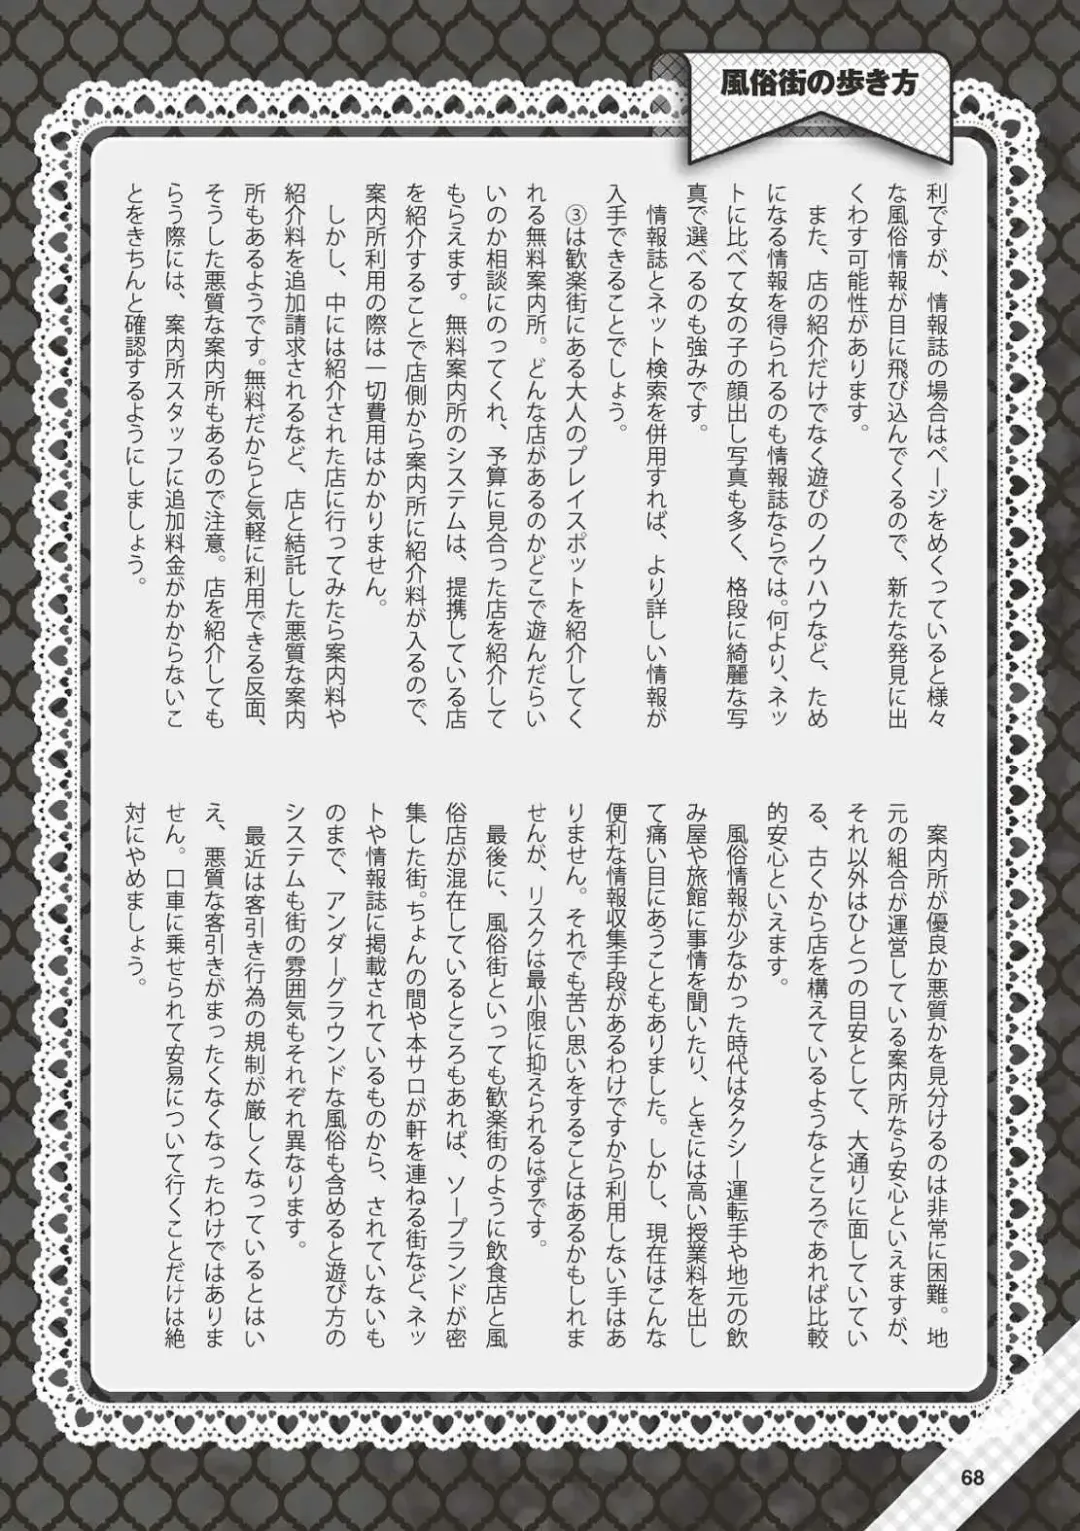 風俗街の歩き方
利ですが、情報誌の場合はページをめくっていると様々
な風俗情報が目に飛び込んでくるので、新たな発見に出
くわす可能性があります。
また、店の紹介だけでなく遊びのノウハウなど、ため
になる情報を得られるのも情報誌ならでは。何より、ネッ
トに比べて女の子の顔出し写真も多く、格段に綺麗な写
真で選べるのも強みです。
情報誌とネット検索を併用すれば、より詳しい情報が
入手できることでしょう。
③は歓楽街にある大人のプレイスポットを紹介してく
れる無料案内所。どんな店があるのかどこで遊んだらい
いのか相談にのってくれ、予算に見合った店を紹介して
もらえます。無料案内所のシステムは、提携している店
を紹介することで店側から案内所に紹介料が入るので、
案内所利用の際は一切費用はかかりません。
しかし、中には紹介された店に行ってみたら案内料や
紹介料を追加請求されるなど、店と結託した悪質な案内
所もあるようです。無料だからと気軽に利用できる反面、
そうした悪質な案内所もあるので注意。店を紹介しても
らう際には、案内所スタッフに追加料金がかからないこ
とをきちんと確認するようにしましょう。
案内所が優良か悪質かを見分けるのは非常に困難。地
元の組合が運営している案内所なら安心といえますが、
それ以外はひとつの目安として、大通りに面していてい
る、古くから店を構えているようなところであれば比較
的安心といえます。
風俗情報が少なかった時代はタクシー運転手や地元の飲
み屋や旅館に事情を聞いたり、ときには高い授業料を出し
て痛い目にあうこともありました。しかし、現在はこんな
便利な情報収集手段があるわけですから利用しない手はあ
りません。それでも苦い思いをすることはあるかもしれま
せんが、リスクは最小限に抑えられるはずです。
最後に、風俗街といっても歓楽街のように飲食店と風
俗店が混在しているところもあれば、ソープランドが密
集した街。ちょんの間や本サロが軒を連ねる街など、ネッ
トや情報誌に掲載されているものから、されていないも
のまで、アンダーグラウンドな風俗も含めると遊び方の
システムも街の雰囲気もそれぞれ異なります。
最近は客引き行為の規制が厳しくなっているとはい
え、悪質な客引きがまったくなくなったわけではありま
せん。口車に乗せられて安易について行くことだけは絶
対にやめましょう。
68